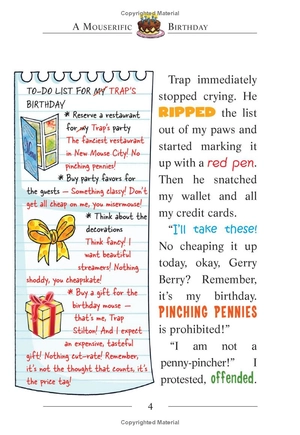 Copyrighted Material
A MOUSERIFIC BIRTHDAY
TO-DO LIST FOR MY TRAP'S
BIRTHDAY
* Reserve a restaurant
for my Trap's party
The fanciest restaurant
in New Mouse City! No
pinching pennies!
* Buy party favors for
the guests – Something classy! Don't
get all cheap on me, you misermouse!
* Think about the
decorations
Think fancy! I
want beautiful
streamers! Nothing
shoddy, you cheapskate!
* Buy a gift for the
birthday mouse –
that's me, Trap
Stilton! And I expect
an expensive, tasteful
gift! Nothing cut-rate! Remember,
it's not the thought that counts, it's
the price tag!
Trap immediately
stopped crying. He
RIPPED the list
out of my paws and
started marking it
up with a red pen.
Then he snatched
my wallet and all
my credit cards.
"I'll take these!
No cheaping it up
today, okay, Gerry
Berry? Remember,
it's my birthday.
PINCHING PENNIES
is prohibited!"
"I am not a
penny-pincher!" I
protested, offended.
4
Copyrighted Material